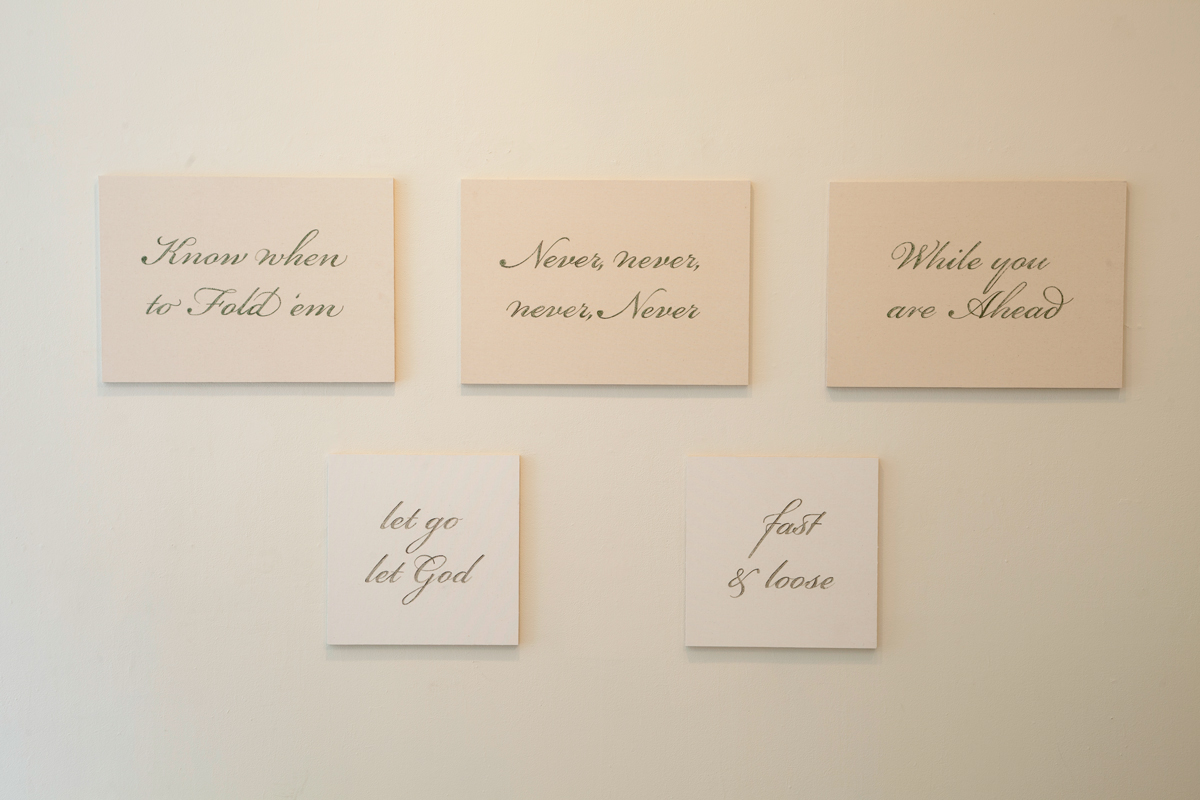 Know when
to Fold 'em
Never, never,
never, Never
While you
are Ahead
let go
let God
fast
& loose